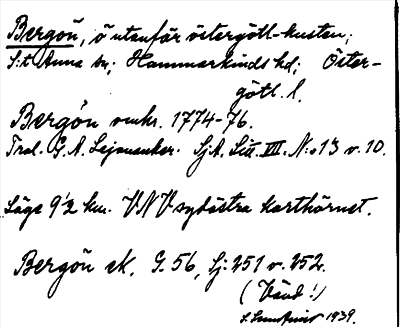 Bergön, ö utanför östergötl-kusten;
S:t Anna sn; Hammarkinds hd; Öster-
götl. l.
Bergön omkr. 1774-76.
Trol. G. A. Lejonanker. Sjk. Litt. VII. N:o 13 v. 10.
Läge 9½ km. VNV sydöstra karthörnet.
Bergön ek. G. 56, Lj: 251 v. 252.
(Vänd!)
1939.